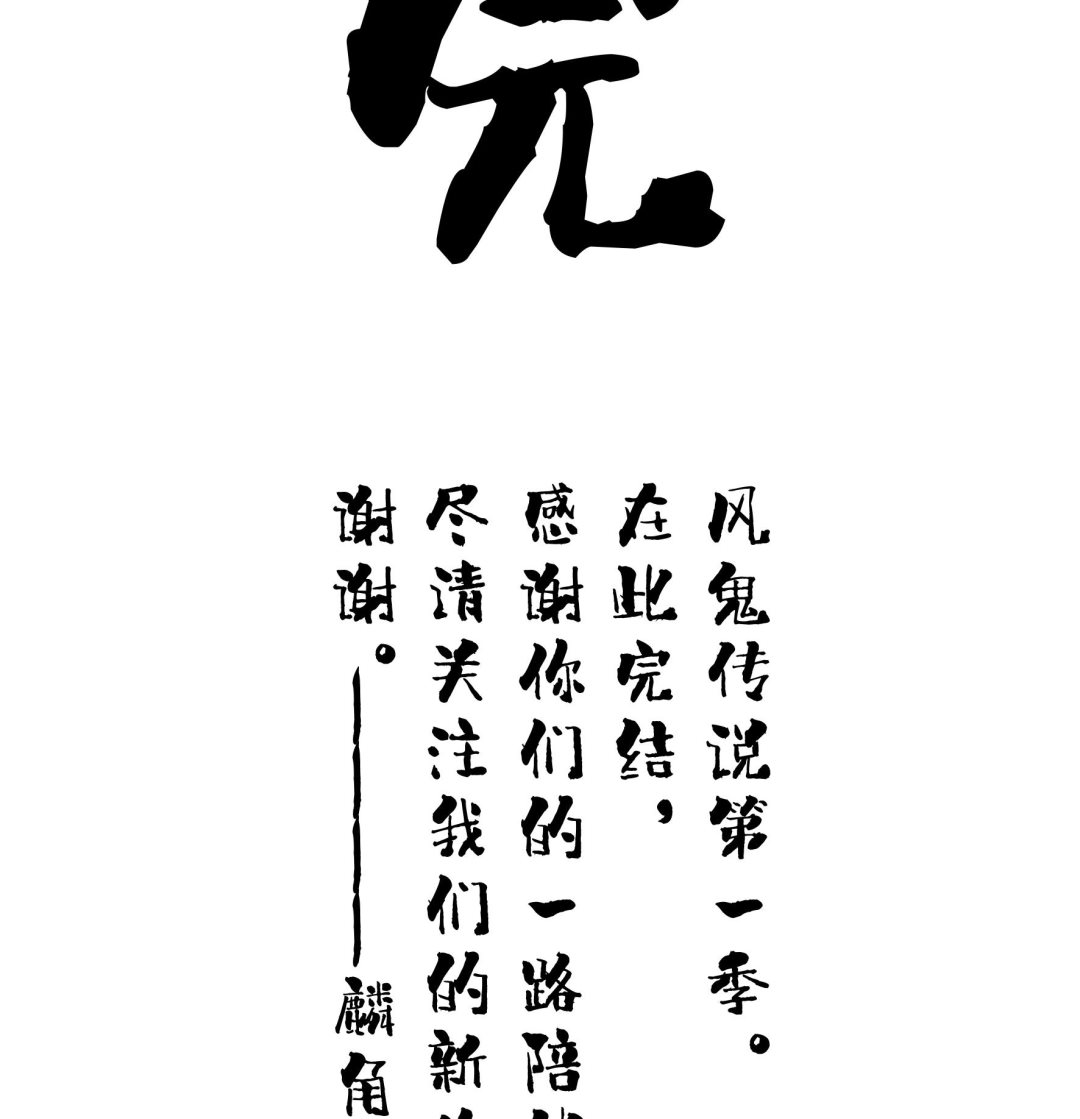 完
风鬼传说第一季。
在此完结，
感谢你们的一路陪
尽请关注我们的新
谢谢。————麟角